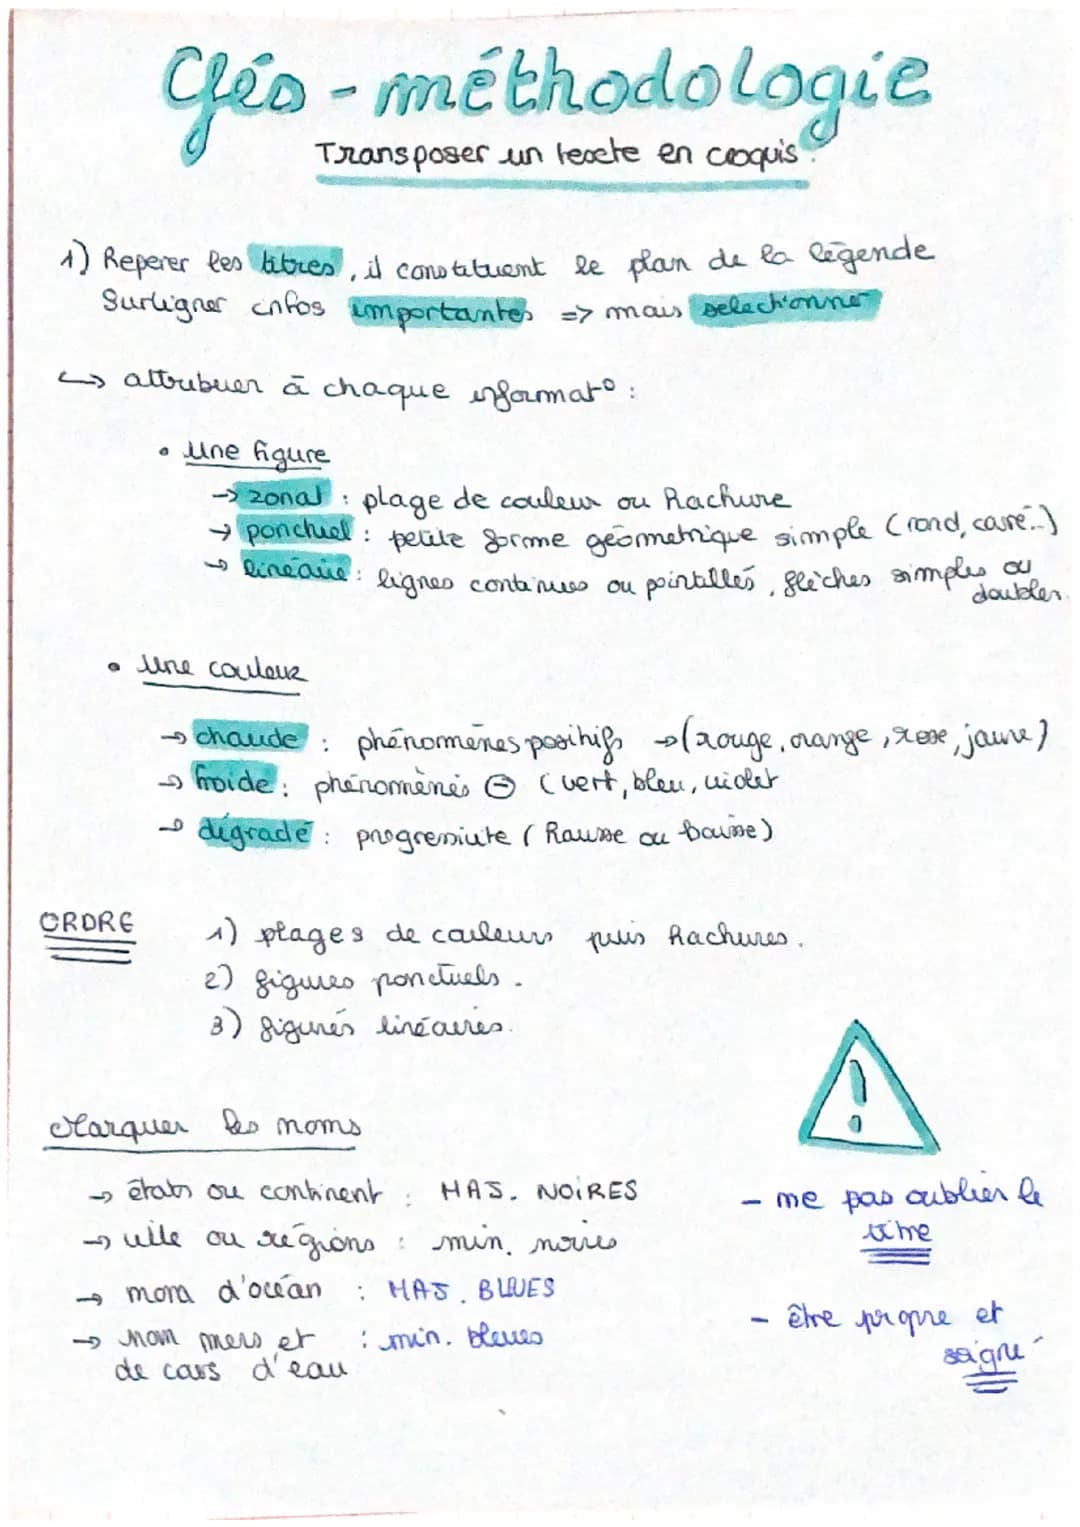 Géo - méthodologie
Transposer un texte en croquis.
1) Reperer les titres, il constituent le plan de la légende
Surligner infos importantes => mais selectionné
↳ attribuer à chaque informat° :
• Une figure
→ zonal : plage de couleur ou hachure
→ ponctuel : petite forme géometrique simple (rond, carré...)
→ linéaire : lignes continues ou pointillés, flèches simples ou doubles.
• Une couleur
→ chaude : phénomènes positifs → (rouge, orange, rose, jaune)
→ froide : phénomènes ⊖ (vert, bleu, violet
→ dégradé : progressivite (hausse ou baisse)
ORDRE
1) plages de couleurs puis hachures.
2) figures ponctuels.
3) figurés linéaires.
Marquer les noms
→ états ou continent : MAJ. NOIRES
→ ville ou régions : min. noires
→ mom d'océan : MAJ. BLEUES
→ nom mers et : min. bleues
de cours d'eau
- ne pas oublier le
titre
- être propre et
soigné